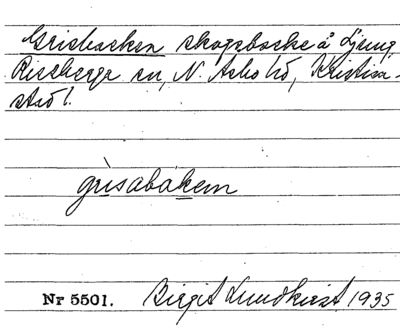 Grisbacken skogsbacke å Ljung,
Riseberga sn, N. Åsbo hd, Kristian-
stads l.
grìsabàkem
Nr 5501. Birgit Lundkvist 1935